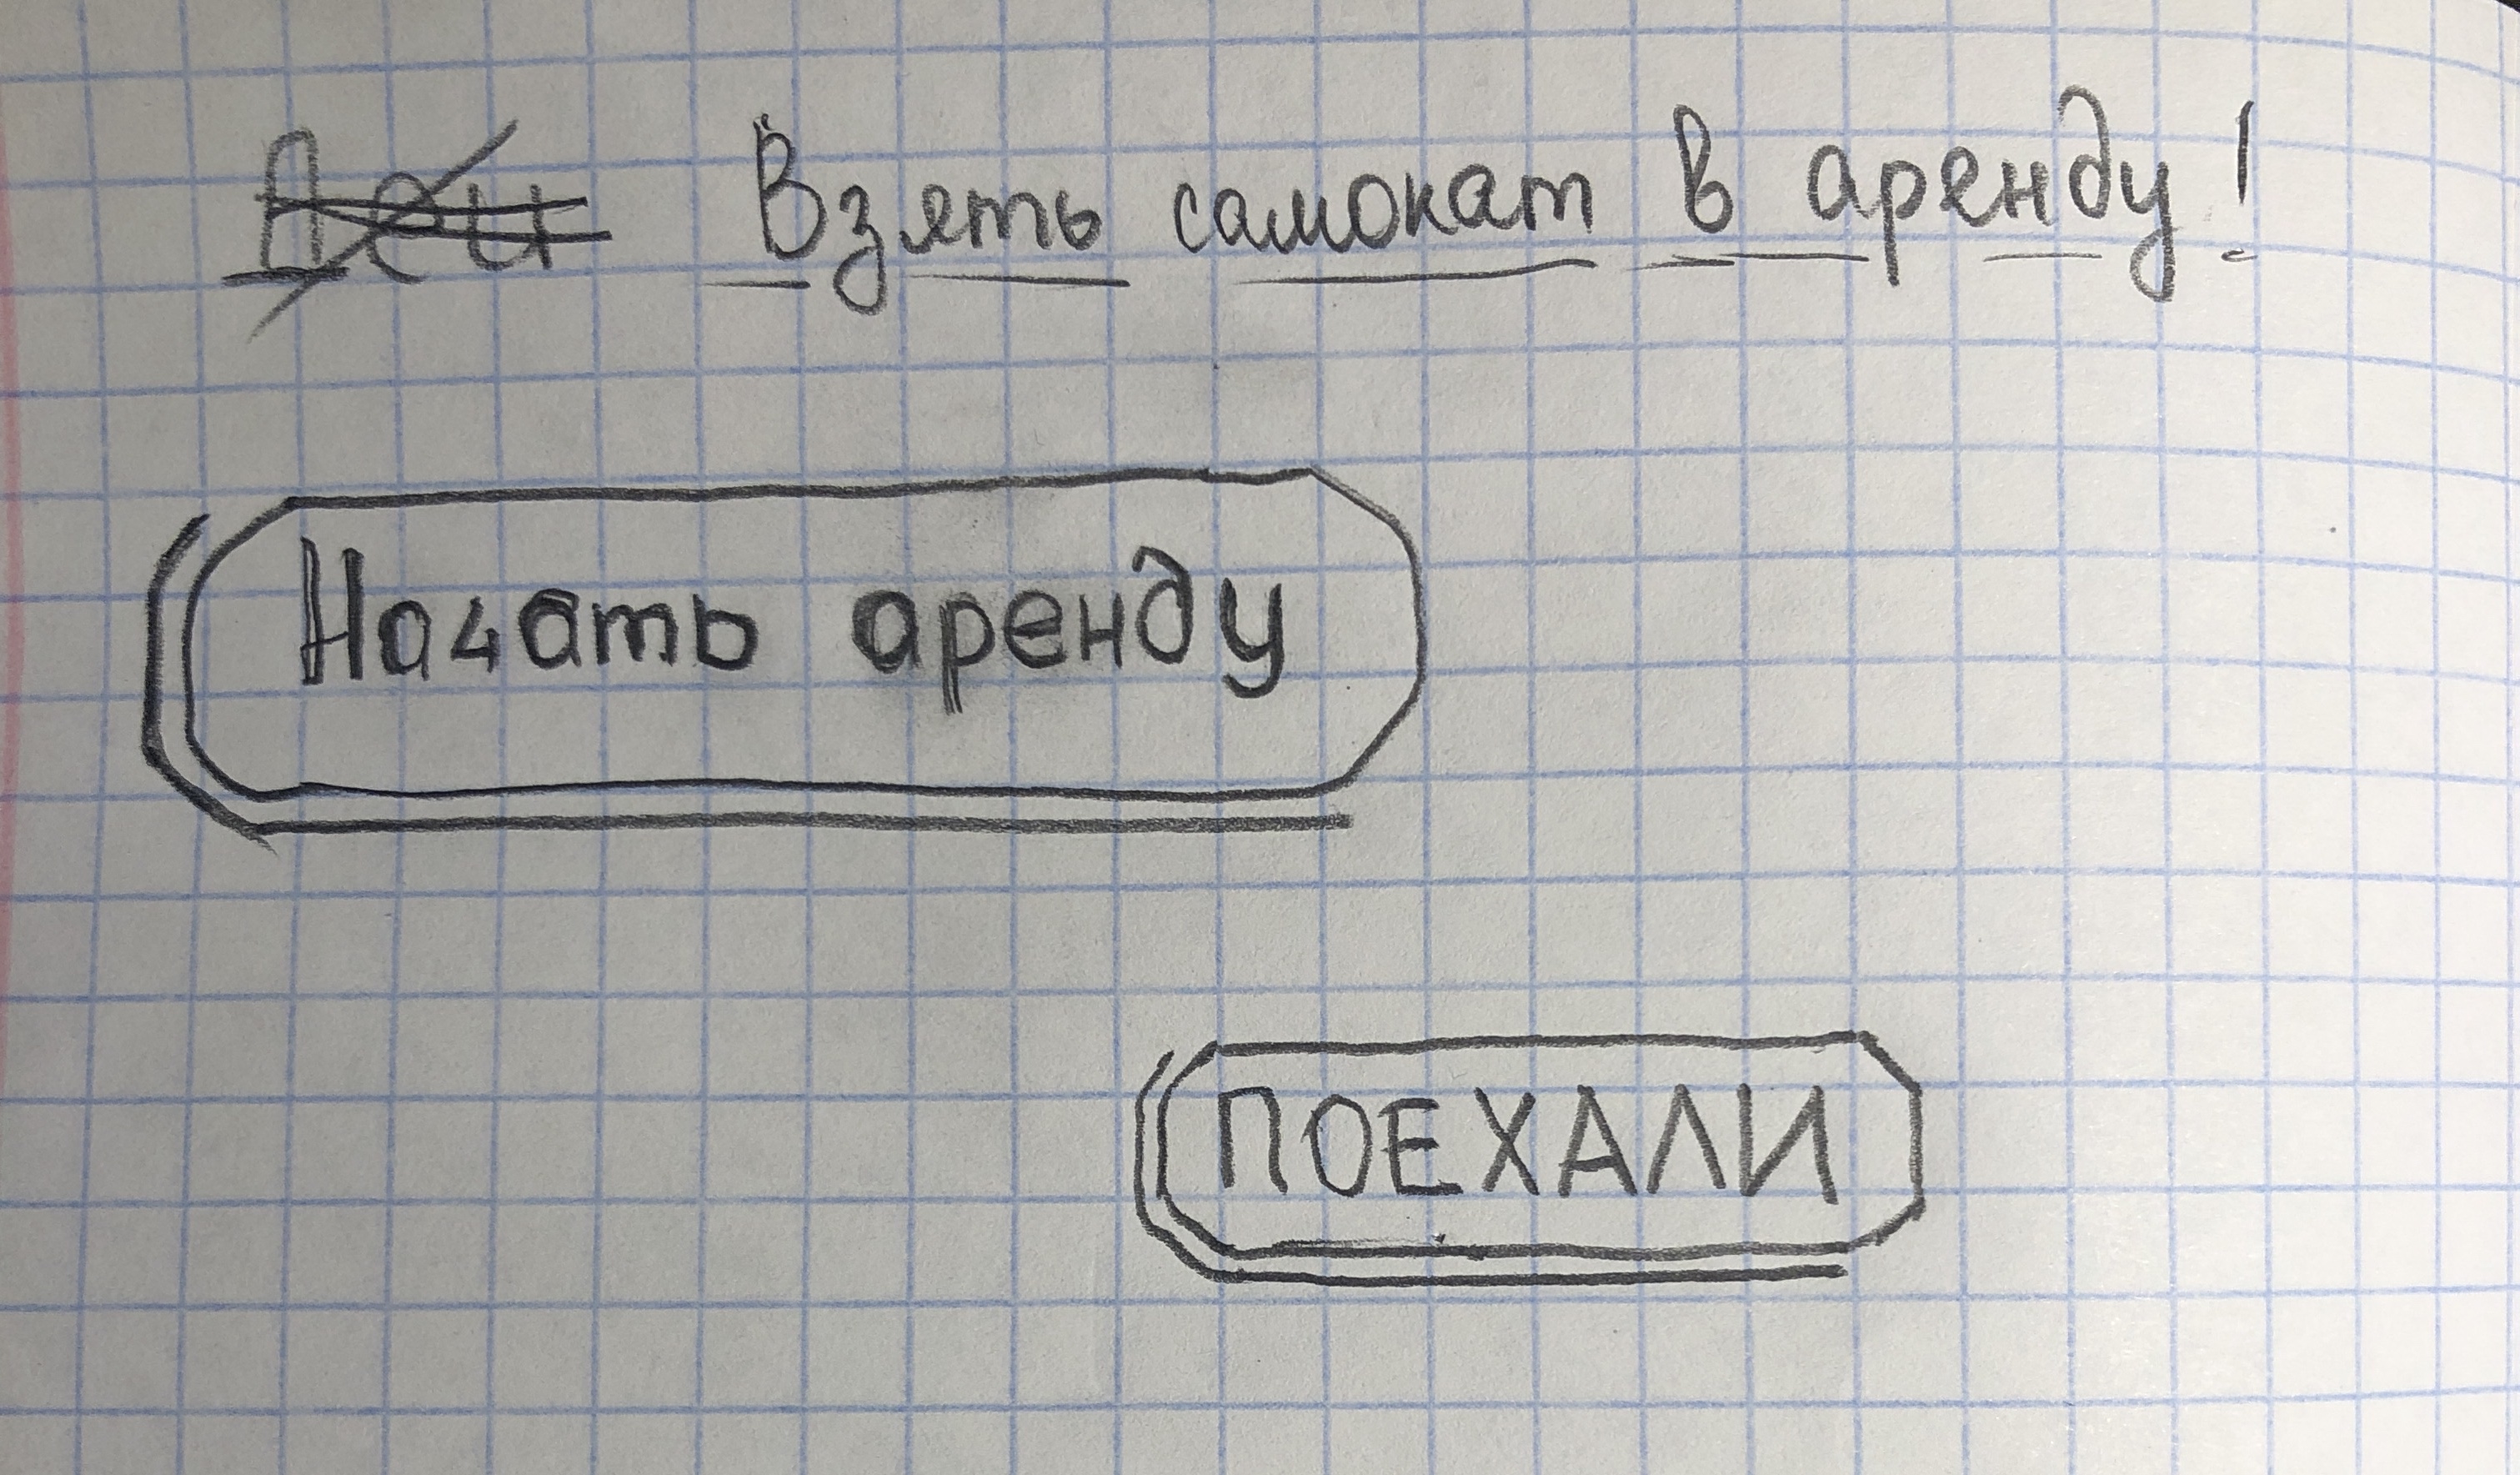 Взять самокат в аренду!
Начать аренду
ПОЕХАЛИ